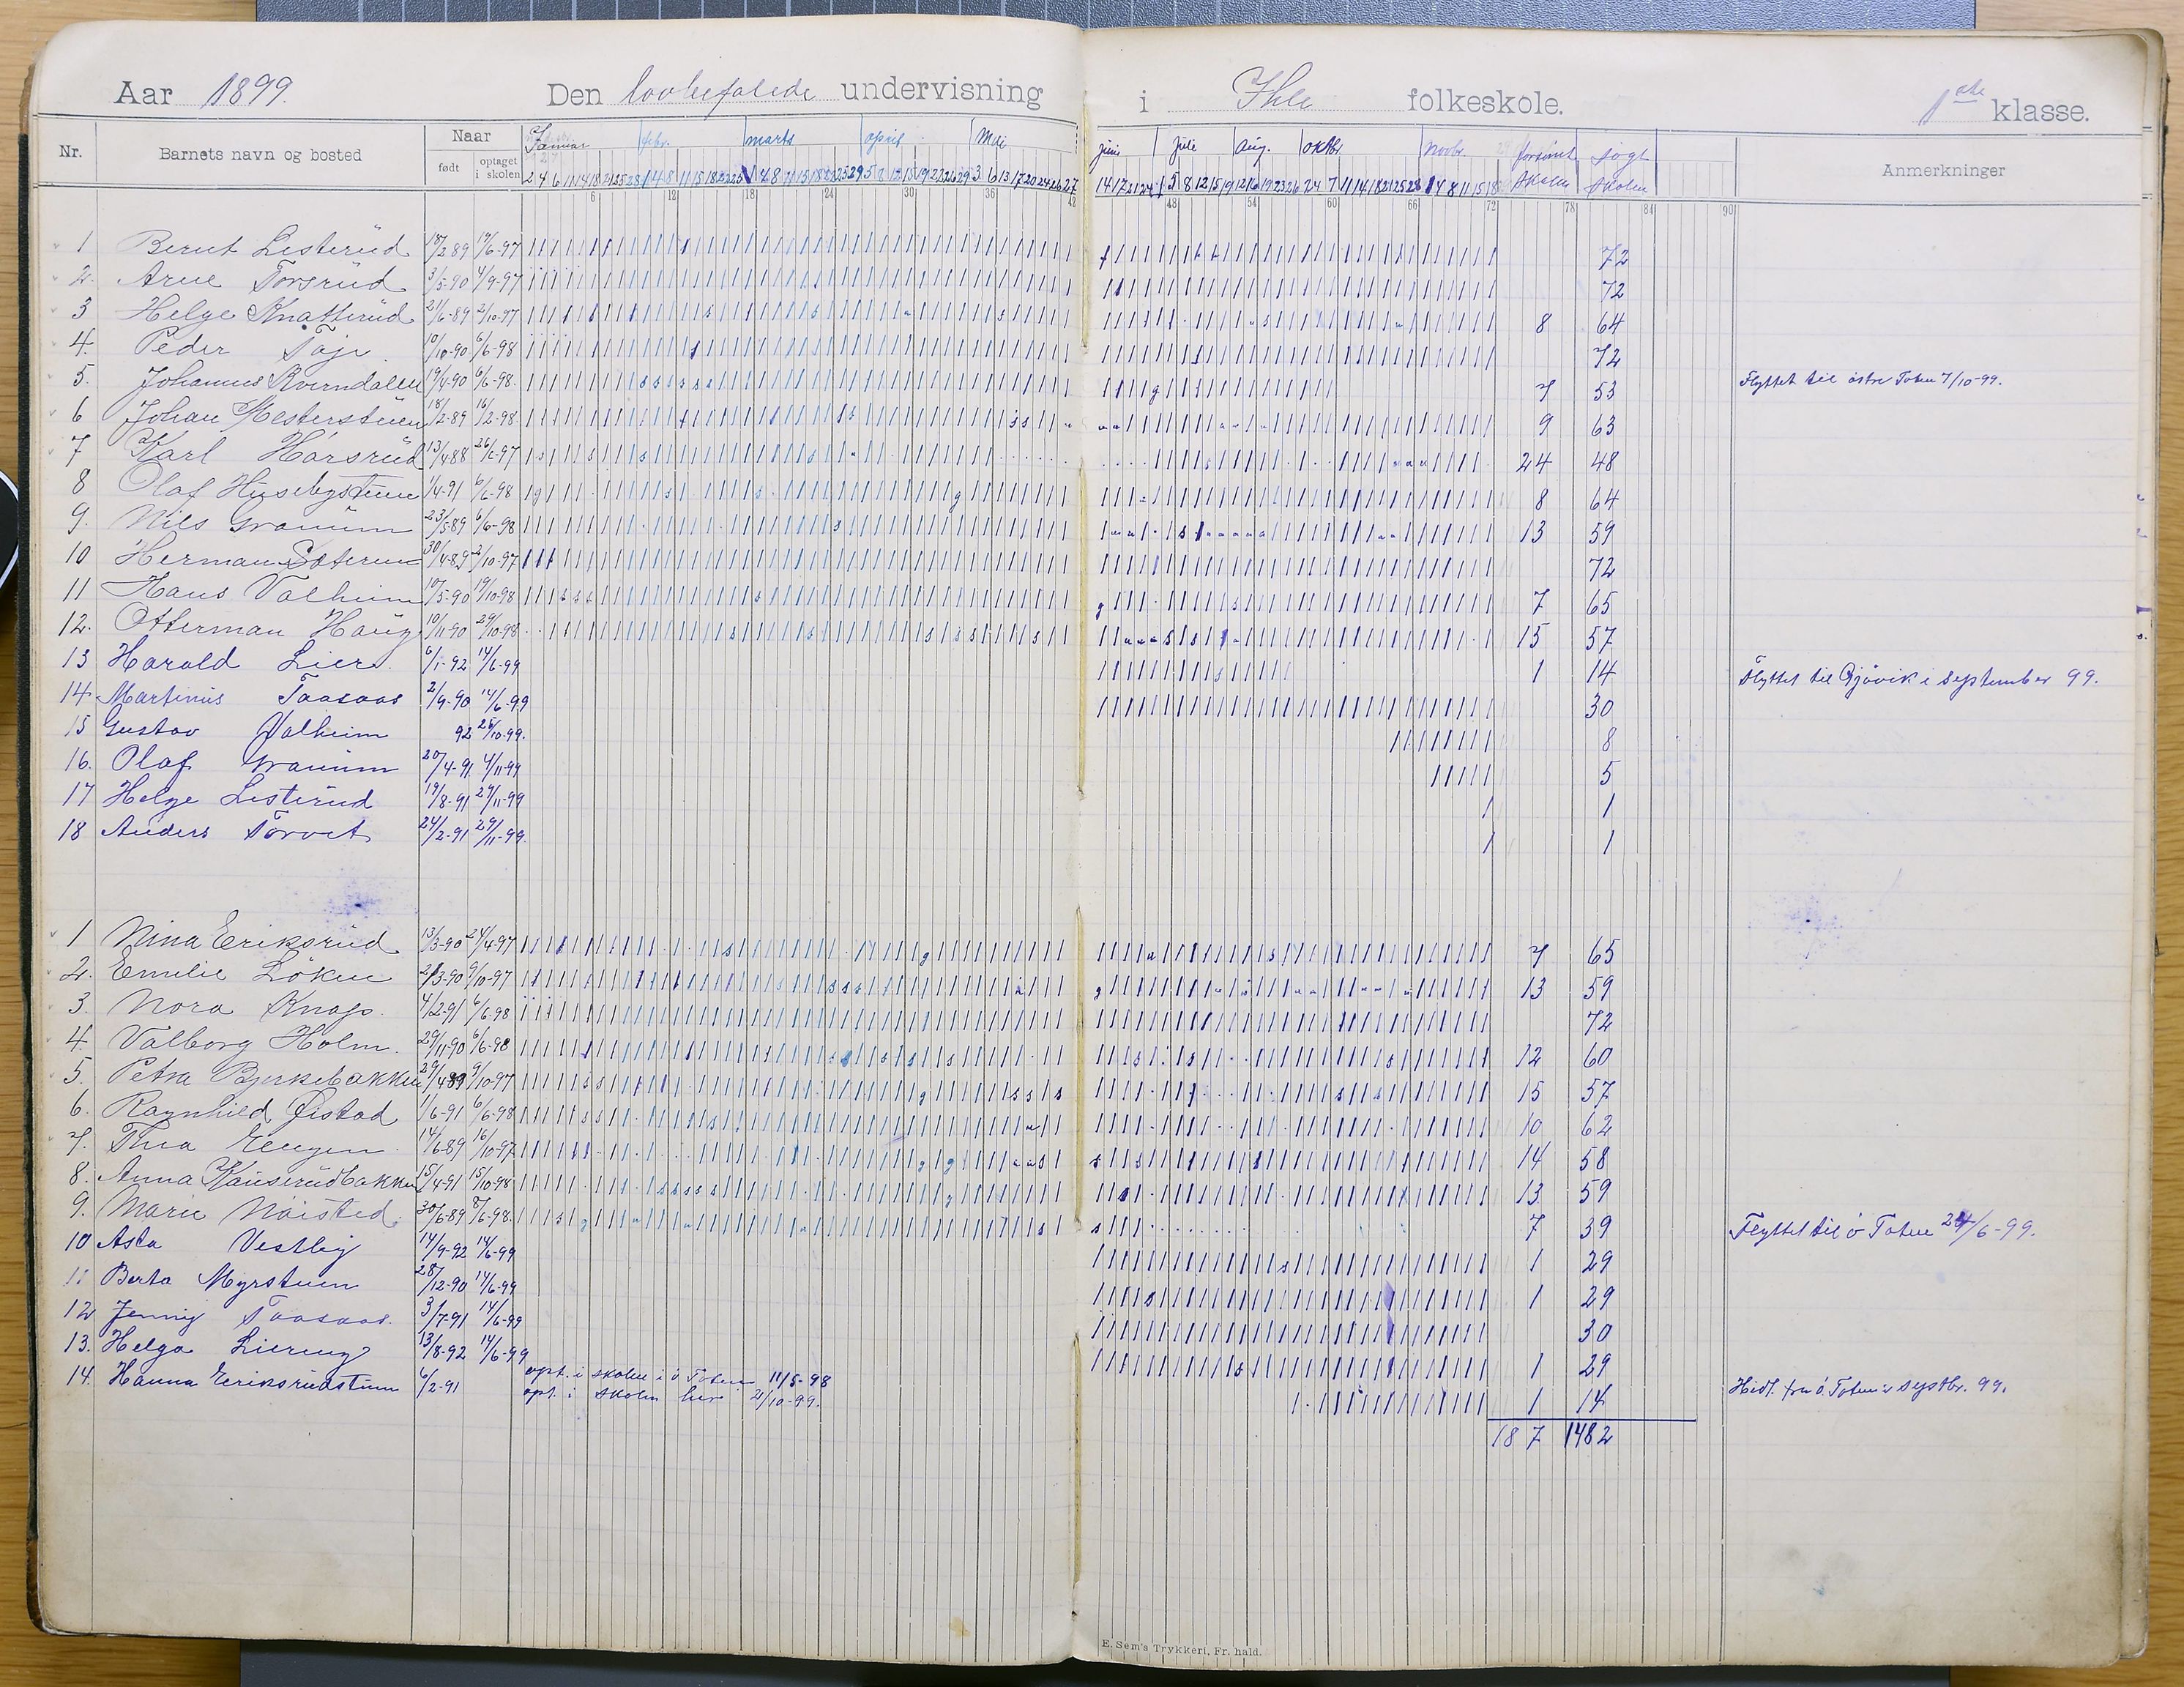 Aar 1899. Den lovbefalede undervisning i Ihle folkeskole. 1ste klasse.
Nr. Barnets navn og bosted Naar født optaget i skolen Januar febr. marts april Mai juni Juli Aug. oktbr Novbr. forsømt skolen søgt skolen Anmerkninger
6 12 18 24 30 36 42 48 54 60 66 72 78 84 90
1 Bernt Listerud 18/2 89 19/6-97 72
2. Arne Torsrud 3/5-90 4/9-97 72
3 Helge Knatterud 21/6-89 2/10-97 8 64
4. Peder Taje 10/10-90 6/6-98 72
5. Johannes Kverndalen 19/4-90 6/6-98. 7 53 Flyttet til østre Toten 7/10-99.
6 Johan Mesterstuen 18/2-89 16/2-98. 9 63
7 Karl Hørsrud 13/4-88 26/6-97 24 48
8 Olaf Husebystuen 1/4-91 6/6-98 8 64
9. Nils Granum 23/5-89 6/6-98 13 59
10 Herman Sæteren 30/4-89 2/10-97 72
11 Hans Valheim 10/5-90 19/10-98 7 65
12. Otterman Haug 10/11-90 29/10-98. 15 57
13 Harald Liers. 6/1-92 14/6-99 1 14 Flyttet til Gjøvik i september 99.
14 Martinus Taasaas 2/9-90 14/6-99 30
15 Gustav Valheim 92 25/10-99. 8
16. Olaf Granum 20/4-91 4/11-99 5
17 Helge Listerud 19/8-91 29/11-99 1
18 Anders Torvet 24/2-91 29/11-99. 1
1 Nina Eriksrud 13/3-90 24/4-97 7 65
2. Emilie Løken 2/3-90 9/10-97 13 59
3. Nora Knags. 4/2-91 6/6-98 72
4. Valborg Holm. 29/11-90 6/6-98 12 60
5. Petra Bjerkebakken 29/4-89 9/10-97 15 57
6. Ragnhild Øistad 1/6-91 6/6-98 10 62
7. Thea Engen 14/6-89 16/10-97 14 58
8. Anna Kauserudbakken 15/4-91 15/10-98 13 59
9. Marie Nøisted. 30/6-89 8/6-98. 7 39 Flyttet til ø Toten 24/6-99.
10 Asta Vestby 14/9-92 14/6-99 1 29
11 Berta Myrstuen 28/12-90 14/6-99 1 29
12 Jenny Taasaas. 3/7-91 14/6-99 30
13. Helga Liereng 13/8-92 14/6-99 1 29
14. Hanna Eriksrudstuen 6/2-91 opt. i skolen i ø Toten 11/5-98
opt. i skolen her 2/10-99. 1 14 Hidfl. fra ø. Toten i septbr. 99.
187 1482
E. Sem's Trykkeri, Fr. hald.